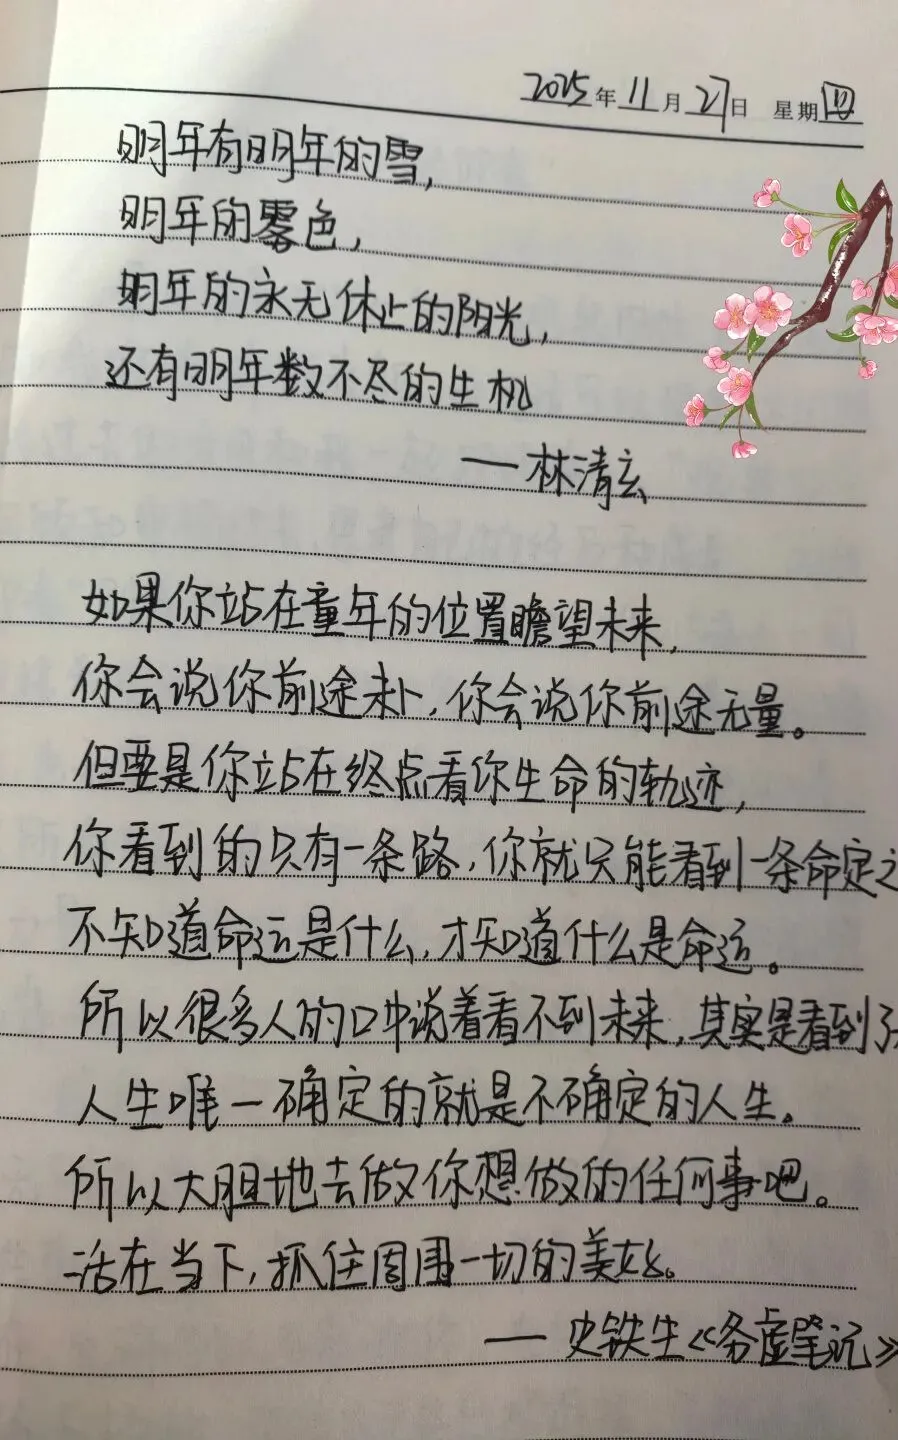 2025年11月27日 星期四
明年有明年的雪,
明年的雾色,
明年的永无休止的阳光,
还有明年数不尽的生机
—林清玄
如果你站在童年的位置瞻望未来,
你会说你前途未卜,你会说你前途无量。
但要是你站在终点看你生命的轨迹,
你看到的只有一条路,你就只能看到一条命定之
不知道命运是什么,才知道什么是命运。
所以很多人的口中说着看不到未来,其实是看到了
人生唯一确定的就是不确定的人生。
所以大胆地去做你想做的任何事吧。
活在当下,抓住周围一切的美好。
— 史铁生《务虚笔记》